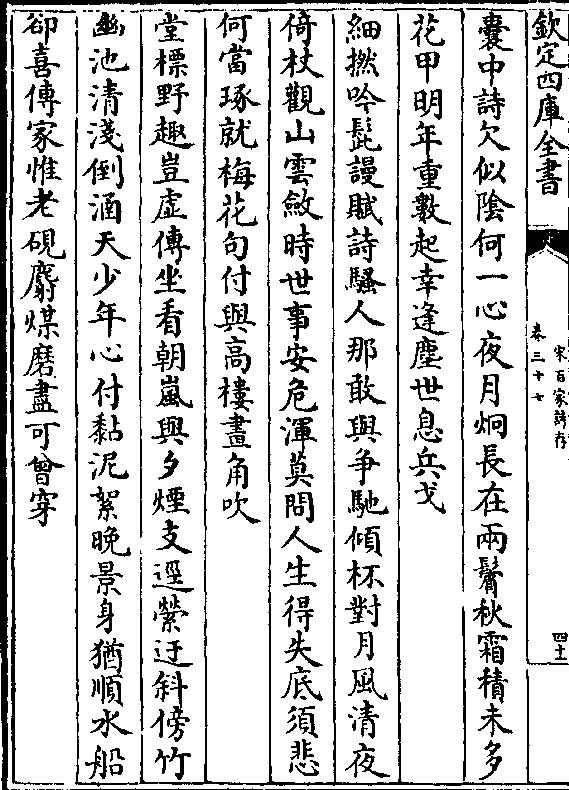 欽定四庫全書
宋百家詩存
卷三十七
四十二
囊中詩欠似陰何一心夜月炯長在兩鬢秋霜積未多
花甲明年重數起幸逢塵世息兵戈
細撚吟髭謾賦詩騷人那敢與爭馳傾杯對月風清夜
倚杖觀山雲斂時世事安危渾莫問人生得失底須悲
何當琢就梅花句付與高樓畫角吹
堂標野趣豈虛傳坐看朝嵐與夕煙支逕縈迂斜傍竹
幽池清淺倒涵天少年心付黏泥絮晚景身猶順水船
卻喜傳家惟老硯麝煤磨盡可曾穿